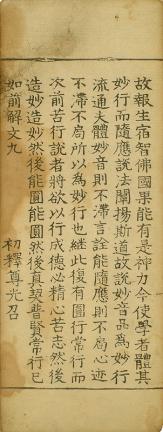 故報生宿智佛國果能有是神力今使學者體其
妙行而隨應說法闡揚斯道故說妙音品為妙行
流通夫體妙音則不滯言詮能隨應則不局心迹
不滯不局所以為妙行也繼此復有圓行常行而
次前苦行說者將欲以行成德必精心苦志然後
造妙造妙然後能圓能圓然後真契普賢常行已
如前解文九
初釋尊光召